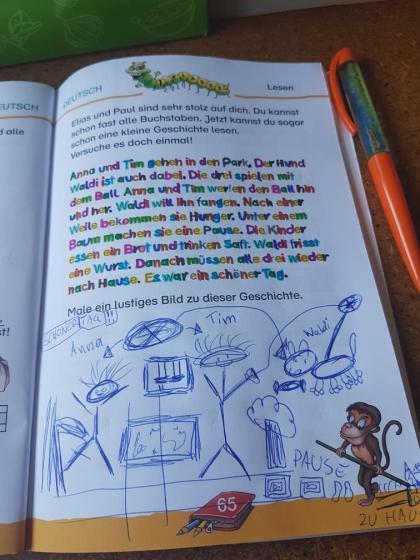 EUTSCH
DEUTSCH
Lesen
d alle
Elias und Paul sind sehr stolz auf dich. Du kannst
schon fast alle Buchstaben. Jetzt kannst du sogar
schon eine kleine Geschichte lesen.
Versuche es doch einmal!
Anna und Tim gehen in den Park. Der Hund
Waldi ist auch dabei. Die drei spielen mit
dem Ball. Anna und Tim werfen den Ball hin
und her. Waldi will ihn fangen. Nach einer
Weile bekommen sie Hunger. Unter einem
Baum machen sie eine Pause. Die Kinder
essen ein Brot und trinken Saft. Waldi frisst
eine Wurst. Danach müssen alle drei wieder
nach Hause. Es war ein schöner Tag.
Male ein lustiges Bild zu dieser Geschichte.
st!
SCHÖNER TAG!!
Anna
Tim
Waldi
PAUSE
ZU HAU
65